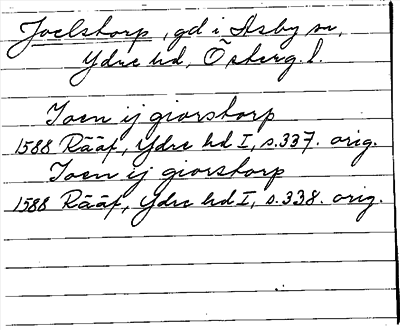 Joelstorp, gd i Asby sn,
Ydre hd, Österg. l.
Joen ij giorstorp
1588 Rääf, Ydre hd I, s. 337. orig.
Joen ij giorstorp
1588 Rääf, Ydre hd I, s. 338. orig.